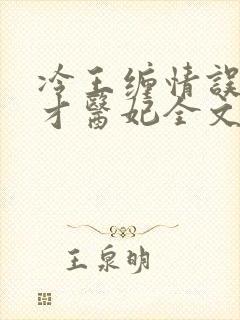 冷王缠情誤
才醫妃全文
王泉明